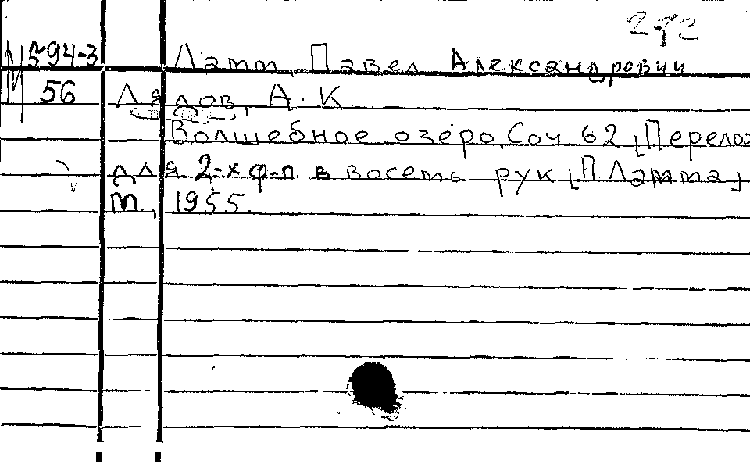 292
М 594-3 Ламм, Павел Александрович
М 56 Лядов, А. К
Волшебное озеро, Соч 62 [Перелож
для 2-х ф-п. в восемь рук [П Ламма]
М, 1955.